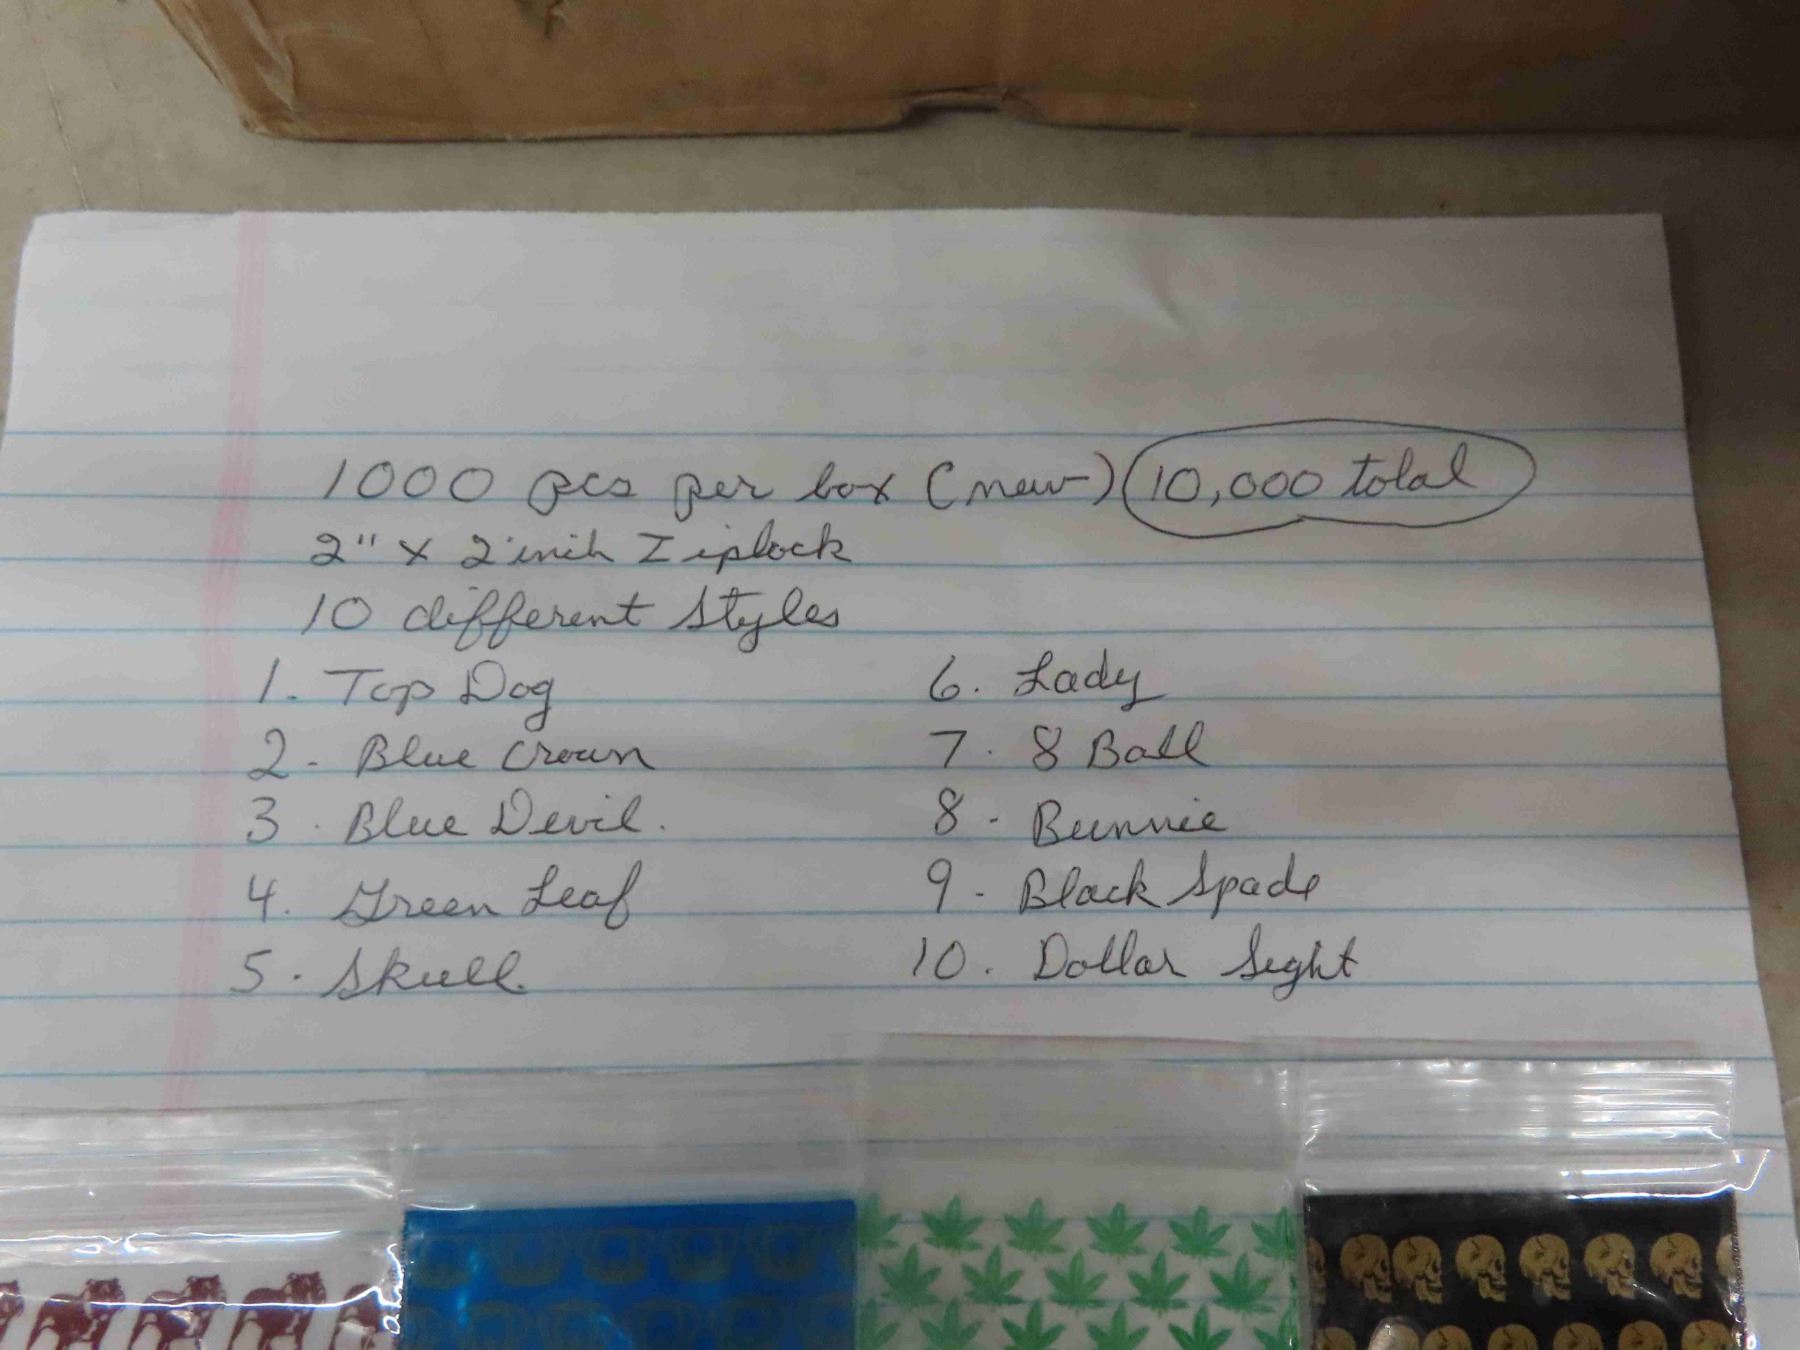 1000 pcs per box (new) 10,000 total
2" x 2 inch Ziplock
10 different Styles
1. Top Dog
2. Blue Crown
3. Blue Devil.
4. Green Leaf
5. Skull
6. Lady
7. 8 Ball
8. Bunnie
9. Black Spade
10. Dollar Sight